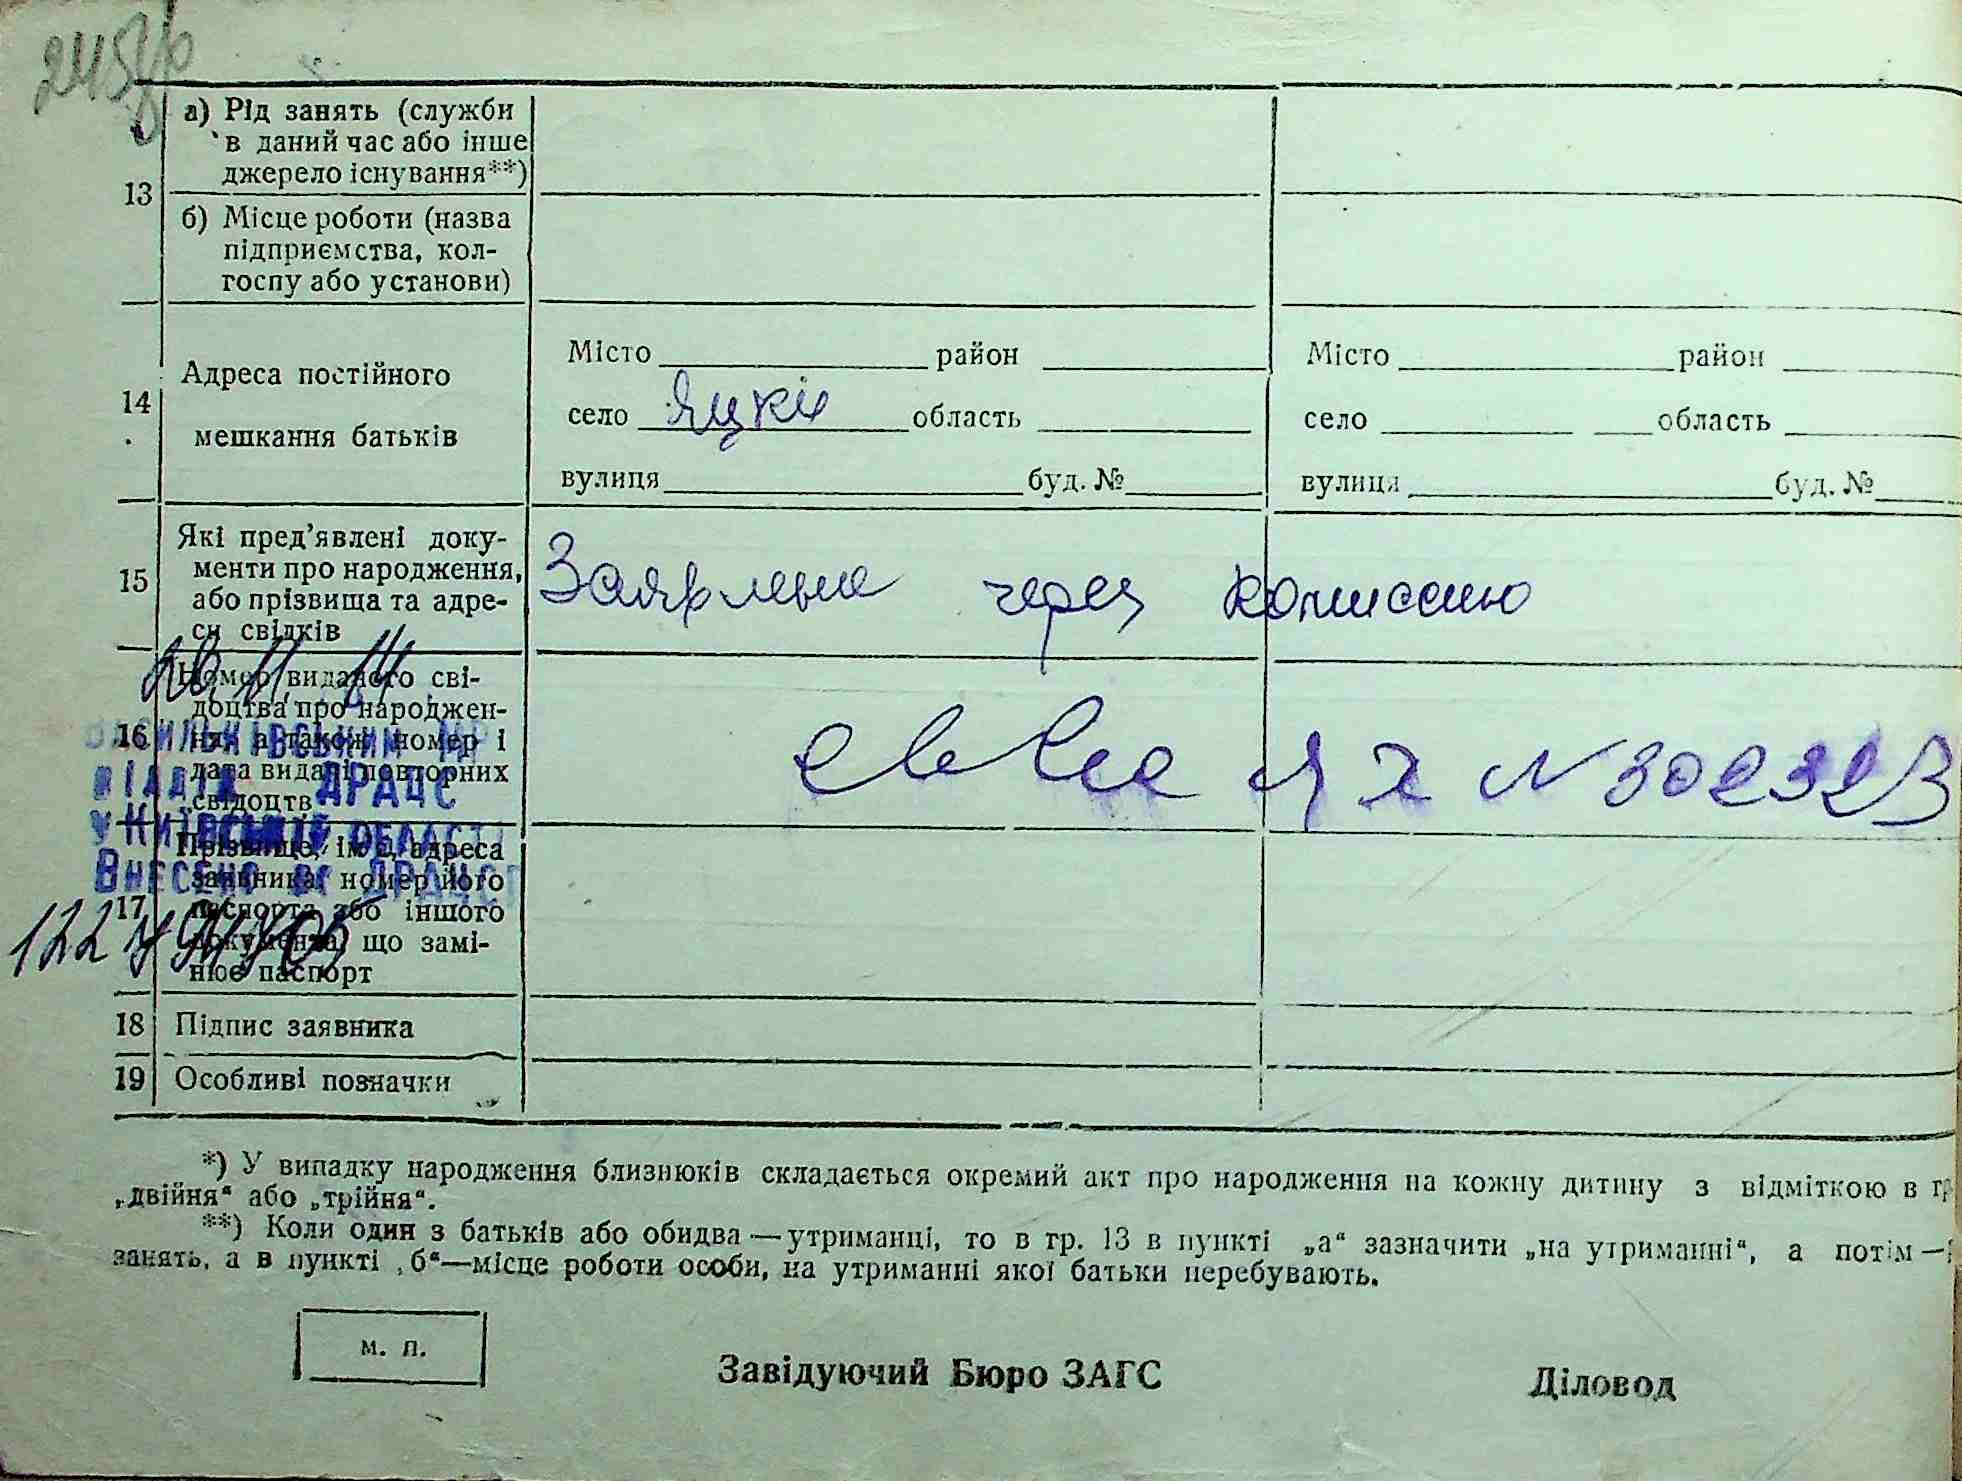 245
а) Рід занять (служби
в даний час або інше
джерело існування**)
13
б) Місце роботи (назва
підприємства, кол-
госпу або установи)
Місто район
Місто район
Адреса постійного
14
село Яцки область
село область
мешкання батьків
вулиця буд. №
вулиця буд. №
Які пред’явлені доку-
менти про народження,
15
або прізвища та адре-
си свідків
через комиссию
Номер виданого сві-
доцтва про народжен-
16
ня, а також номер і
дата видачі повторних
свідоцтв
ЯХ N 302323
ВАСИЛЬКІВСЬКИЙ МР
ВІДДІЛ ДРАЦС
У КИЇВСЬКІЙ ОБЛАСТІ
ВНЕСЕНО ДО ДРАЦСГ
Прізвище, ім’я, адреса
заявника, номер його
17
паспорта або іншого
документа, що замі-
нює паспорт
18 Підпис заявника
19 Особливі позначки
*) У випадку народження близнюків складається окремий акт про народження на кожну дитину з відміткою в гр
„двійня“ або „трійня“.
**) Коли один з батьків або обидва — утриманці, то в гр. 13 в пункті „а“ зазначити „на утриманні“, а потім —
занять, а в пункті „б“—місце роботи особи, на утриманні якої батьки перебувають.
м. п.
Завідуючий Бюро ЗАГС
Діловод